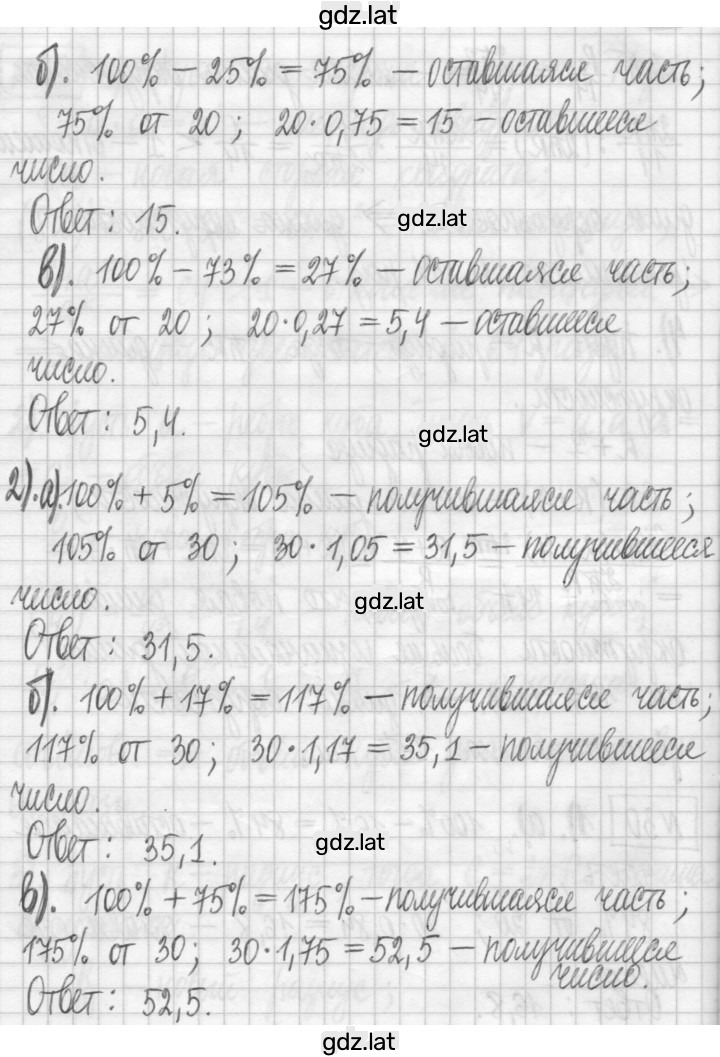 gdz.lat
б). 100% − 25% = 75% − оставшаяся часть;
75% от 20; 20·0,75 = 15 − оставшееся
число.
Ответ: 15.
gdz.lat
в). 100% − 73% = 27% − оставшаяся часть;
27% от 20; 20·0,27 = 5,4 − оставшееся
число.
Ответ: 5,4.
gdz.lat
2). а). 100% + 5% = 105% − получившаяся часть;
105% от 30; 30·1,05 = 31,5 − получившееся
число.
gdz.lat
Ответ: 31,5.
б). 100% + 17% = 117% − получившаяся часть;
117% от 30; 30·1,17 = 35,1 − получившееся
число.
Ответ: 35,1.
gdz.lat
в). 100% + 75% = 175% − получившаяся часть;
175% от 30; 30·1,75 = 52,5 − получившееся
число.
Ответ: 52,5.
gdz.lat